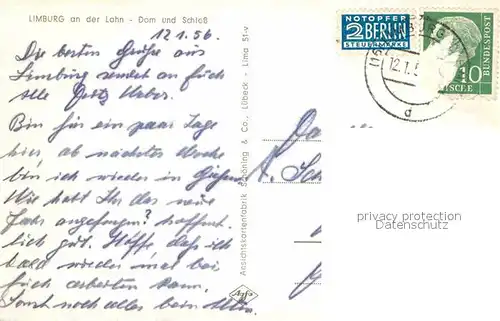 LIMBURG an der Lahn - Dom und Schloß
12.1.56.
Die besten Grüße aus
Limburg sendet an Euch
alle Fritz Weber.
Bin für ein paar Tage
hier, ab nächster Woche
bin ich wieder in Gießen
Wie habt Ihr das neue
Jahr angefangen? hoffent-
lich gut. Hoffe, daß ich
bald wieder mal bei
Euch arbeiten kann.
Sonst noch alles beim Alten.
Ansichtskartenfabrik Schöning & Co., Lübeck - Lima 51-v
Agfa
NOTOPFER
2 BERLIN
STEUERMARKE
LIMBURG
12.1.5
d
10
DEUTSCHE
BUNDESPOST
privacy protection
Datenschutz